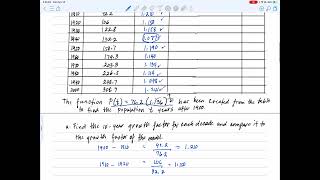 1910 92.2 1.210
1920 106 1.150
1930 122.8 1.158
1940 132.2 1.077
1950 150.7 1.140
1960 179.3
1970 203.3
1980 226.5
1990 248.7
2000
The function P(t) = 76.2 (1.156)^t has been created from the table
to find the population t years after 1900.
a. Find the 10-year growth factor for each decade and compare it to
the growth factor of the model.
1900 - 1910 = 92.2 / 76.2 = 1.210
1910 - 1920 = 106 / 92.2 = 1.150